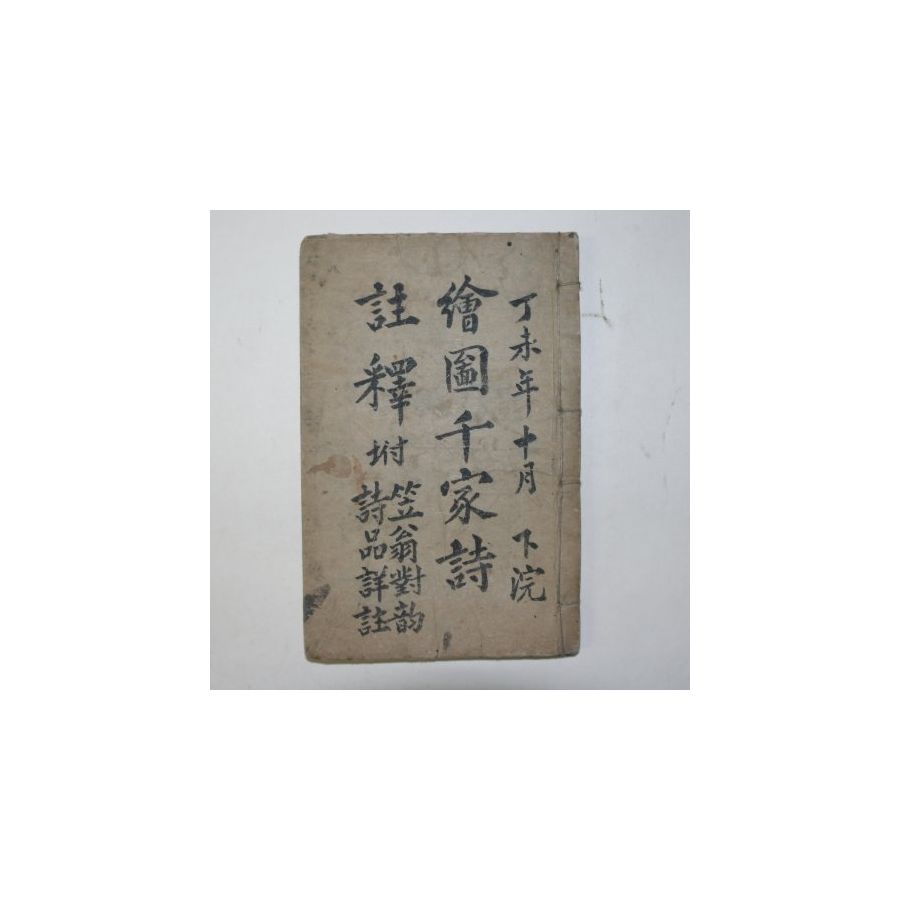 丁未年十月 下浣
繪圖千家詩
註釋 坿
笠翁對韵
詩品詳註